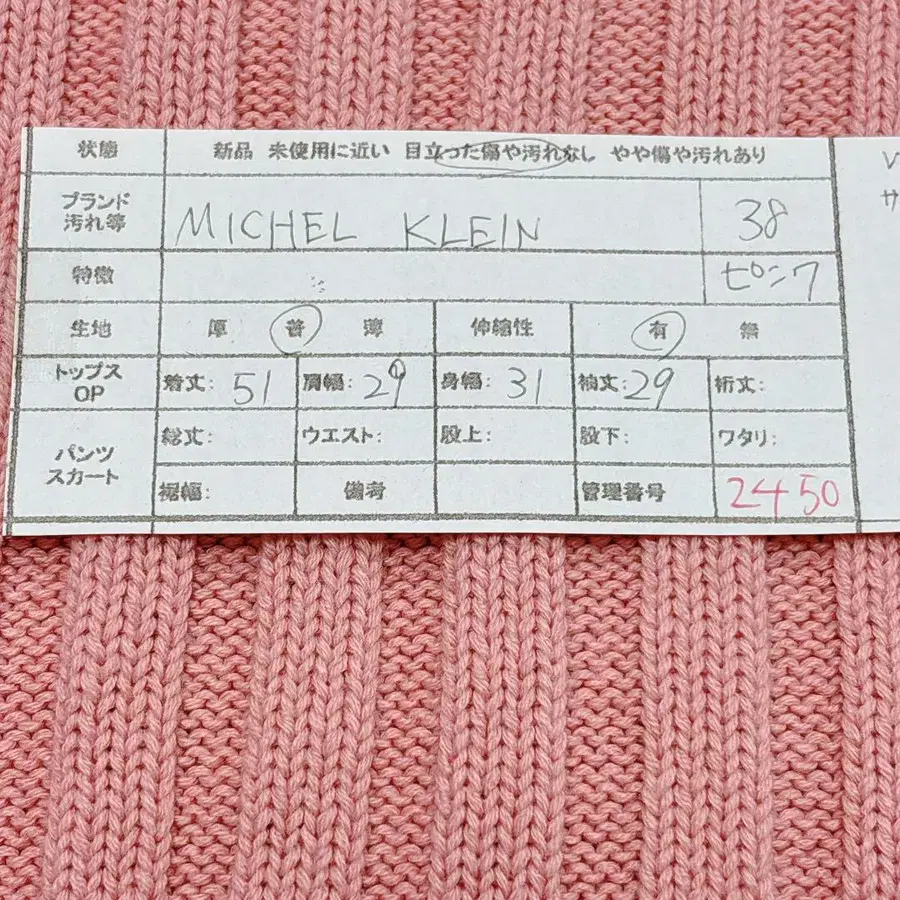 状態 新品 未使用に近い 目立った傷や汚れなし やや傷や汚れあり
ブランド 汚れ等 MICHEL KLEIN 38
特徴 ピンク
生地 厚 普 薄 伸縮性 有 無
トップス OP 着丈: 51 肩幅: 29 身幅: 31 袖丈: 29 裄丈:
パンツ スカート 総丈: ウエスト: 股上: 股下: ワタリ:
裾幅: 備考 管理番号 2450
サ